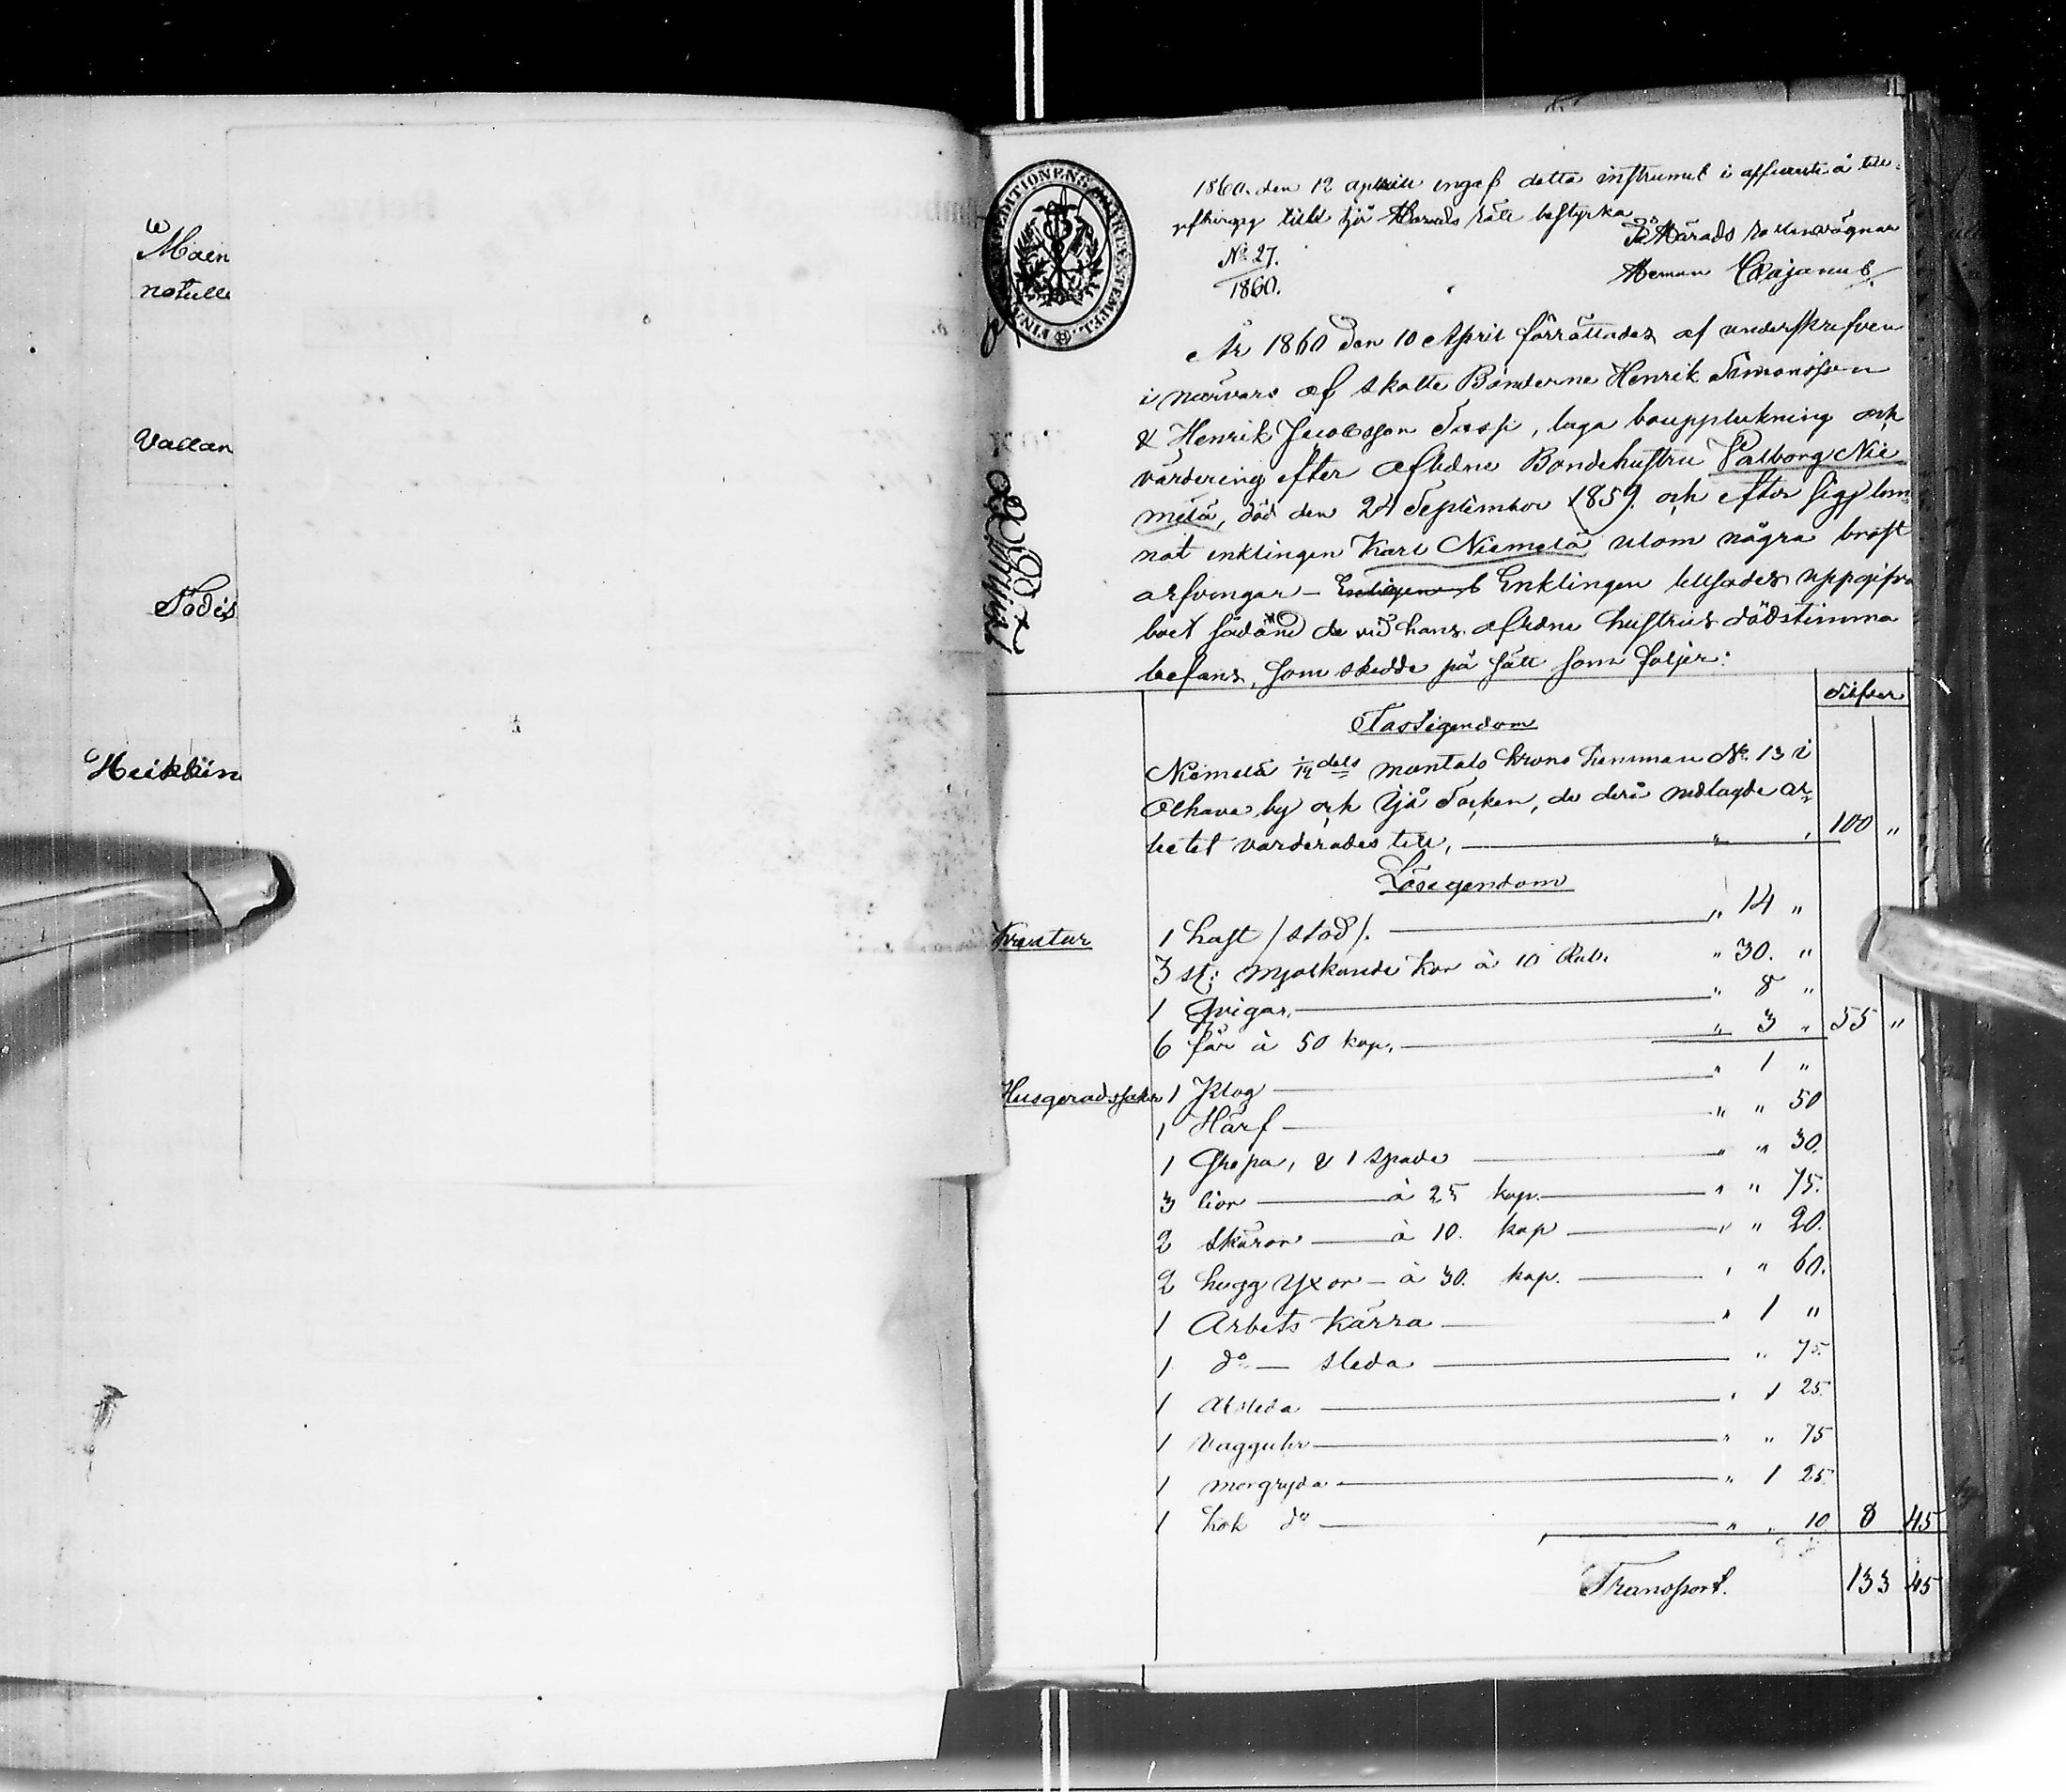 Maen
notulle
Vallan
Södis
Heikkin
1860. den 12 april ingaf detta instrument i afseende å till-
till Ijo Härads rätt bestyrka
På Härads rättens vägnar
No 27.
1860.
Herman Cajanus
År 1860 den 10 April förrättades af underskrifven
i närvaro af skatte Bönderne Henrik Simonsson
& Henrik Jacobsson Tassi, laga bouppteckning och
värdering efter aflidne Bondehustru Valborg Nie
melä, död den 24 September 1859. och efter sig lem-
nat enklingen Karl Niemelä utom några bröst
arfvingar – Enklingen tillsades uppgifva
boet sådant de vid hans aflidne hustrus dödstimma
befans, som skedde på sätt som följer:
Silfver
Fastigendom
Niemelä 1/12 dels mantals krono hemman No 13 i
Olhava by och Ijo Socken, de derå nedlagde ar-
betet värderades till, — " " 100 "
Lösegendom
Kreatur 1 häst /stod/. — " 14 "
3 st: mjölkande kor à 10 Rub. " 30. "
1 qvigar, — " 8 "
6 får à 50 kop, — " 3 " 55 "
Husgerådssaker 1 Plog — " 1 "
1 Harf — " " 50
1 Grepa, & 1 spade — " " 30.
3 lior — à 25 kop. — " " 75.
2 skäror — à 10. kop — " " 20.
2 hugg yxor – à 30. kop. — " " 60.
1 Arbets kärra — " 1 "
1 do — släda — " 75.
1 åksleda — " 1 25.
1 vägguhr — " " 75
1 morgryda — " 1 25.
1 kok do — " " 10 8 45
Transport. 133 45